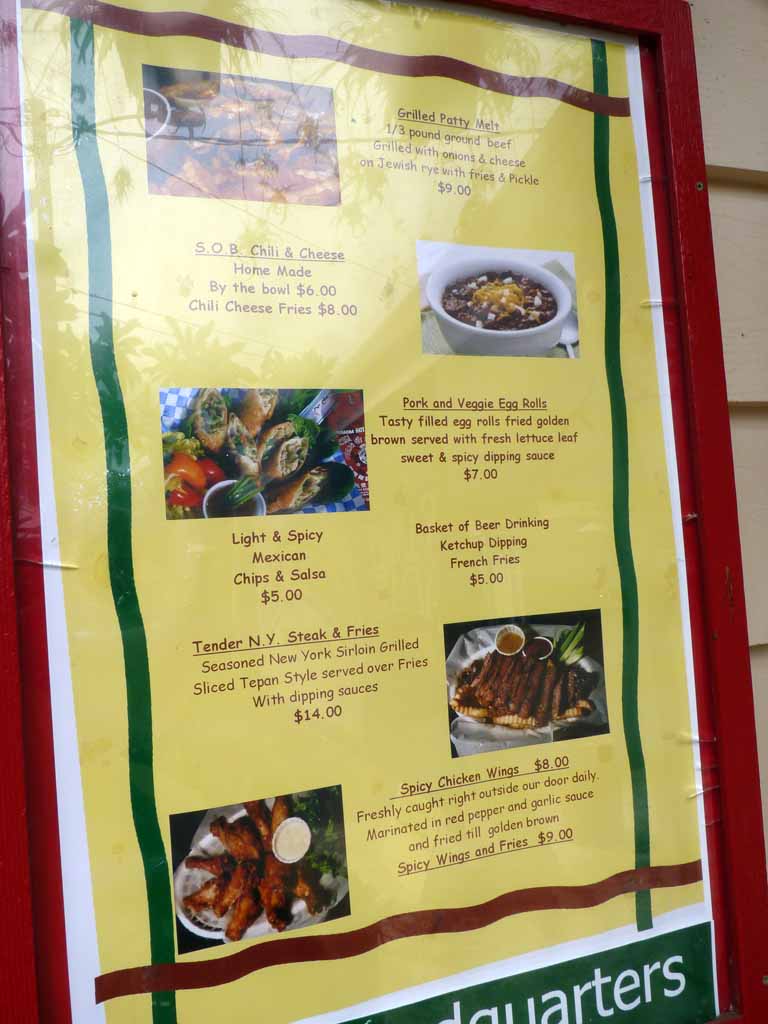 Grilled Patty Melt
1/3 pound ground beef
Grilled with onions & cheese
on Jewish rye with fries & Pickle
$9.00
S.O.B. Chili & Cheese
Home Made
By the bowl $6.00
Chili Cheese Fries $8.00
Pork and Veggie Egg Rolls
Tasty filled egg rolls fried golden
brown served with fresh lettuce leaf
sweet & spicy dipping sauce
$7.00
Light & Spicy
Mexican
Chips & Salsa
$5.00
Basket of Beer Drinking
Ketchup Dipping
French Fries
$5.00
Tender N.Y. Steak & Fries
Seasoned New York Sirloin Grilled
Sliced Tepan Style served over Fries
With dipping sauces
$14.00
Spicy Chicken Wings $8.00
Freshly caught right outside our door daily.
Marinated in red pepper and garlic sauce
and fried till golden brown
Spicy Wings and Fries $9.00
dquarters